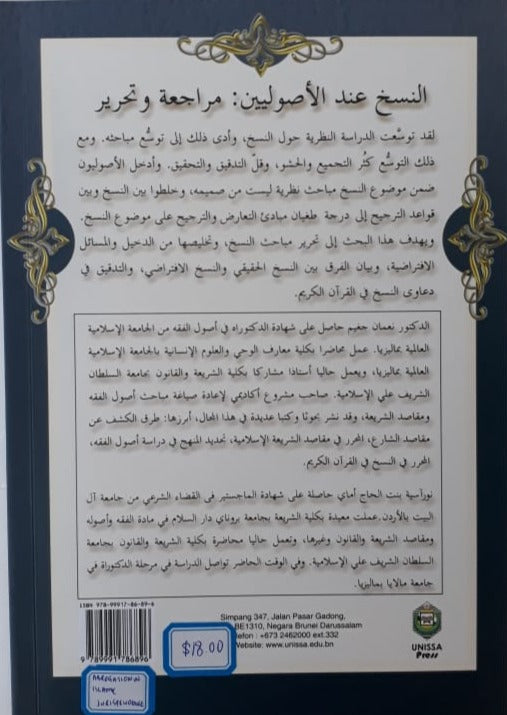 النسخ عند الأصوليين: مراجعة وتحرير
لقد توسَّعت الدراسة النظرية حول النسخ، وأدى ذلك إلى توسُّع مباحثه. ومع
ذلك التوسُّع كثُر التجميع والحشو، وقلّ التدقيق والتحقيق. وأدخل الأصوليون
ضمن موضوع النسخ مباحث نظرية ليست من صميمه، وخلطوا بين النسخ وبين
قواعد الترجيح إلى درجة طغيان مبادئ التعارض والترجيح على موضوع النسخ.
ويهدف هذا البحث إلى تحرير مباحث النسخ، وتخليصها من الدخيل والمسائل
الافتراضية، وبيان الفرق بين النسخ الحقيقي والنسخ الافتراضي، والتدقيق في
دعاوى النسخ في القرآن الكريم.
الدكتور نعمان جغيم حاصل على شهادة الدكتوراه في أصول الفقه من الجامعة الإسلامية
العالمية بماليزيا. عمل محاضرا بكلية معارف الوحي والعلوم الإنسانية بالجامعة الإسلامية
العالمية بماليزيا، ويعمل حاليا أستاذا مشاركا بكلية الشريعة والقانون بجامعة السلطان
الشريف علي الإسلامية. صاحب مشروع أكاديمي لإعادة صياغة مباحث أصول الفقه
ومقاصد الشريعة، وقد نشر بحوثا وكتبا عديدة في هذا المجال، أبرزها: طرق الكشف عن
مقاصد الشارع، المحرر في مقاصد الشريعة الإسلامية، تجديد المنهج في دراسة أصول الفقه،
المحرر في النسخ في القرآن الكريم.
نورآسية بنت الحاج أماي حاصلة على شهادة الماجستير في القضاء الشرعي من جامعة آل
البيت بالأردن. عملت معيدة بكلية الشريعة بجامعة بروناي دار السلام في مادة الفقه وأصوله
ومقاصد الشريعة والقانون وغيرها، وتعمل حاليا محاضرة بكلية الشريعة والقانون بجامعة
السلطان الشريف علي الإسلامية. وفي الوقت الحاضر تواصل الدراسة في مرحلة الدكتوراة في
جامعة مالايا بماليزيا.
ISBN 978-99917-86-89-6
9 789991 786896
Simpang 347, Jalan Pasar Gadong,
BE1310, Negara Brunei Darussalam
Telefon : +673 2462000 ext.332
Website: www.unissa.edu.bn
UNISSA
Press
$18.00
ABROGATION IN
ISLAMIC
JURISPRUDENCE